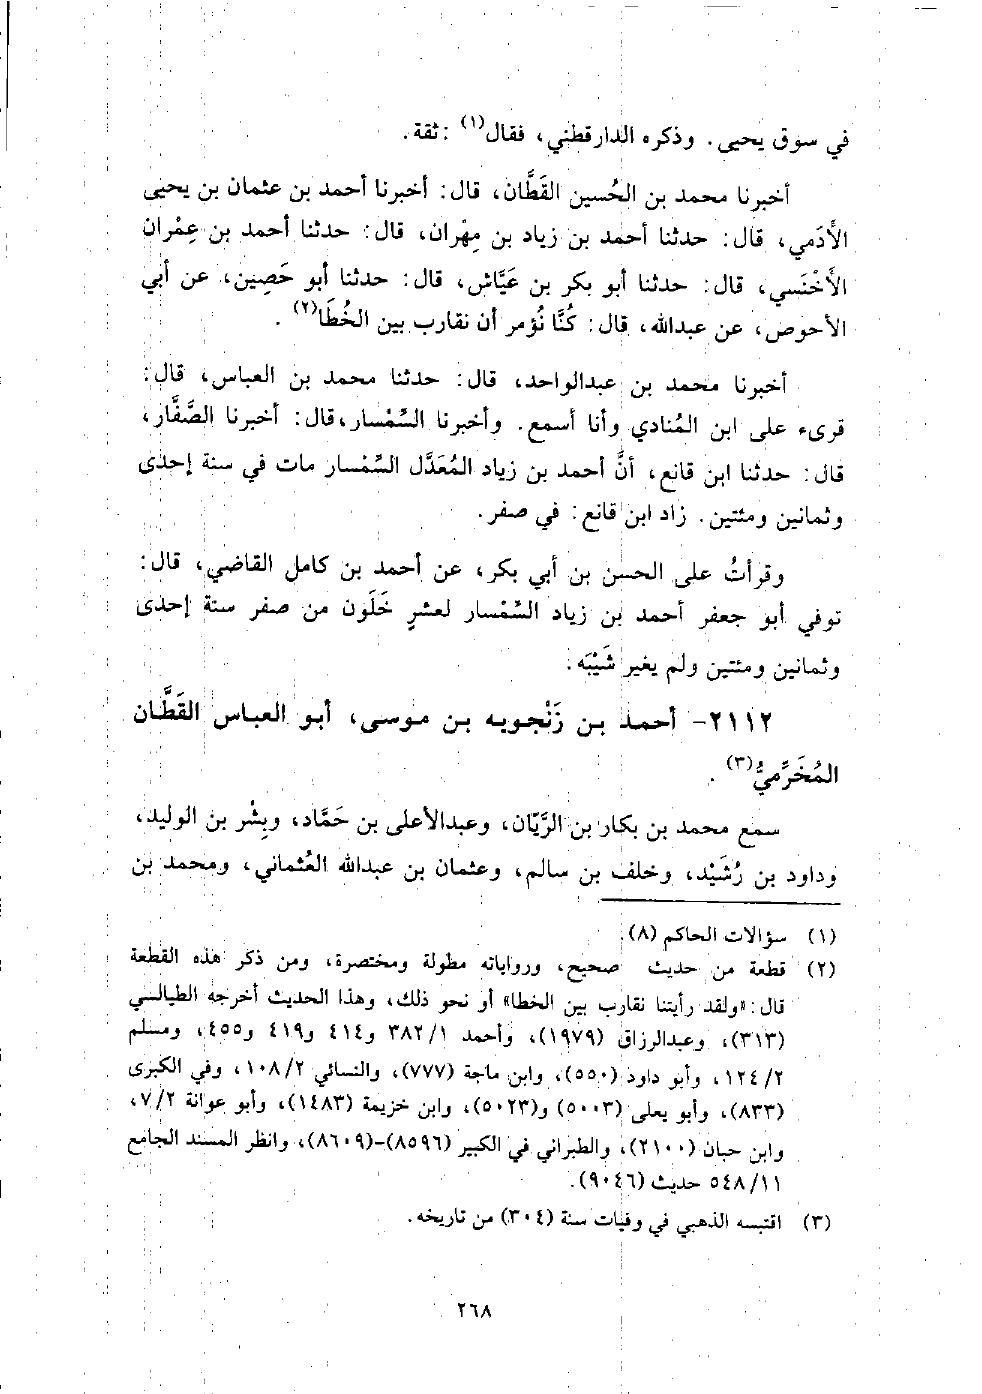 في سوق يحيى. وذكره الدارقطني، فقال(١): ثقة.
أخبرنا محمد بن الحُسين القَطَّان، قال: أخبرنا أحمد بن عثمان بن يحيى
الأَدَمي، قال: حدثنا أحمد بن زياد بن مِهْران، قال: حدثنا أحمد بن عِمْران
الأَخْنَسي، قال: حدثنا أبو بكر بن عَيَّاش، قال: حدثنا أبو حَصِين، عن أبي
الأحوص، عن عبدالله، قال: كُنَّا نُؤمر أن نقارب بين الخُطَا(٢).
أخبرنا محمد بن عبدالواحد، قال: حدثنا محمد بن العباس، قال:
قرىء على ابن المُنادي وأنا أسمع. وأخبرنا السِّمْسار، قال: أخبرنا الصَّفَّار،
قال: حدثنا ابن قانع، أنَّ أحمد بن زياد المُعَدَّل السِّمْسار مات في سنة إحدى
وثمانين ومئتين. زاد ابن قانع: في صفر.
وقرأتُ على الحسن بن أبي بكر، عن أحمد بن كامل القاضي، قال:
توفي أبو جعفر أحمد بن زياد السِّمْسار لعشرٍ خَلَون من صفر سنة إحدى
وثمانين ومئتين ولم يغير شَيْبَه.
٢١١٢- أحمد بن زَنْجويه بن موسى، أبو العباس القَطَّان
المُخَرِّميُّ(٣).
سمع محمد بن بكار بن الرَّيّان، وعبدالأعلى بن حَمَّاد، وبِشْر بن الوليد،
وداود بن رُشَيْد، وخلف بن سالم، وعثمان بن عبدالله العُثماني، ومحمد بن
(١) سؤالات الحاكم (٨).
(٢) قطعة من حديث صحيح، ورواياته مطولة ومختصرة، ومن ذكر هذه القطعة
قال: «ولقد رأيتنا نقارب بين الخطا» أو نحو ذلك، وهذا الحديث أخرجه الطيالسي
(٣١٣)، وعبدالرزاق (١٩٧٩)، وأحمد ٣٨٢/١ و٤١٤ و٤١٩ و٤٥٥، ومسلم
١٢٤/٢، وأبو داود (٥٥٠)، وابن ماجة (٧٧٧)، والنسائي ١٠٨/٢، وفي الكبرى
(٨٣٣)، وأبو يعلى (٥٠٠٣) و(٥٠٢٣)، وابن خزيمة (١٤٨٣)، وأبو عوانة ٧/٢،
وابن حبان (٢١٠٠)، والطبراني في الكبير (٨٥٩٦)-(٨٦٠٩)، وانظر المسند الجامع
٥٤٨/١١ حديث (٩٠٤٦).
(٣) اقتبسه الذهبي في وفيات سنة (٣٠٤) من تاريخه.
٢٦٨